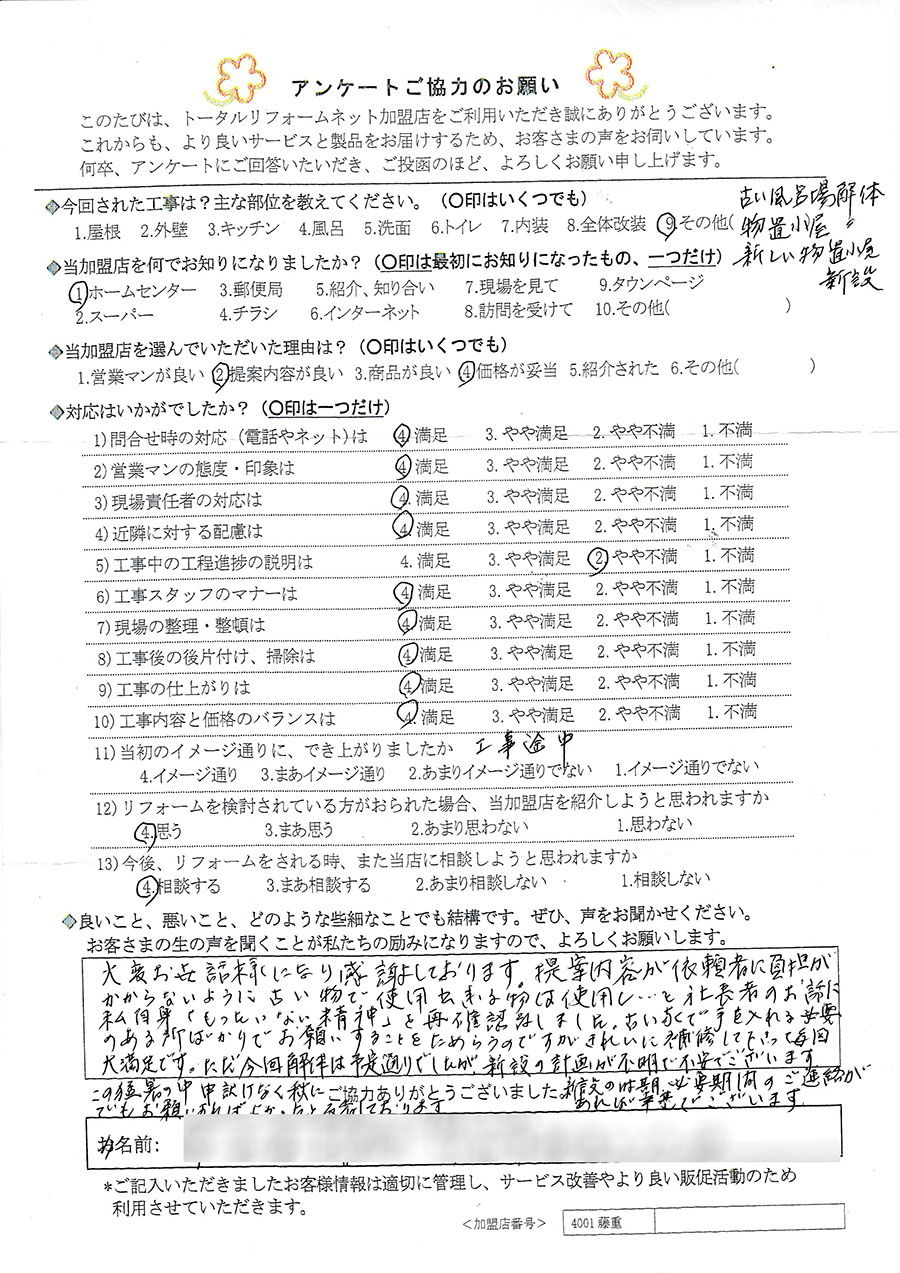 アンケートご協力のお願い
このたびは、トータルリフォームネット加盟店をご利用いただき誠にありがとうございます。
これからも、より良いサービスと製品をお届けするため、お客さまの声をお伺いしています。
何卒、アンケートにご回答いたいだき、ご投函のほど、よろしくお願い申し上げます。
◆今回された工事は？主な部位を教えてください。（〇印はいくつでも）
1.屋根 2.外壁 3.キッチン 4.風呂 5.洗面 6.トイレ 7.内装 8.全体改装 ⑨その他(
古い風呂場解体
物置小屋 〃
新しい物置小屋
新設
◆当加盟店を何でお知りになりましたか？（〇印は最初にお知りになったもの、一つだけ）
①ホームセンター 3.郵便局 5.紹介、知り合い 7.現場を見て 9.タウンページ
2.スーパー 4.チラシ 6.インターネット 8.訪問を受けて 10.その他( )
◆当加盟店を選んでいただいた理由は？（〇印はいくつでも）
1.営業マンが良い ②提案内容が良い 3.商品が良い ④価格が妥当 5.紹介された 6.その他( )
◆対応はいかがでしたか？（〇印は一つだけ）
1)問合せ時の対応（電話やネット)は ④満足 3.やや満足 2.やや不満 1.不満
2)営業マンの態度・印象は ④満足 3.やや満足 2.やや不満 1.不満
3)現場責任者の対応は ④満足 3.やや満足 2.やや不満 1.不満
4)近隣に対する配慮は ④満足 3.やや満足 2.やや不満 1.不満
5)工事中の工程進捗の説明は 4.満足 3.やや満足 ②やや不満 1.不満
6)工事スタッフのマナーは ④満足 3.やや満足 2.やや不満 1.不満
7)現場の整理・整頓は ④満足 3.やや満足 2.やや不満 1.不満
8)工事後の後片付け、掃除は ④満足 3.やや満足 2.やや不満 1.不満
9)工事の仕上がりは ④満足 3.やや満足 2.やや不満 1.不満
10)工事内容と価格のバランスは ④満足 3.やや満足 2.やや不満 1.不満
11)当初のイメージ通りに、でき上がりましたか 工事途中
4.イメージ通り 3.まあイメージ通り 2.あまりイメージ通りでない 1.イメージ通りでない
12)リフォームを検討されている方がおられた場合、当加盟店を紹介しようと思われますか
④思う 3.まあ思う 2.あまり思わない 1.思わない
13)今後、リフォームをされる時、また当店に相談しようと思われますか
④相談する 3.まあ相談する 2.あまり相談しない 1.相談しない
◆良いこと、悪いこと、どのような些細なことでも結構です。ぜひ、声をお聞かせください。
お客さまの生の声を聞くことが私たちの励みになりますので、よろしくお願いします。
大変お世話様になり感謝しております。提案内容が依頼者に負担が
かからないように古い物で使用出来る物は使用し…と社長者のお話に
私自身「もったいない精神」を再確認しました。古い家で手を入れる必要
のある所ばかりでお願いすることをためらうのですがきれいに補修して下さって毎回
大満足です。ただ今回解体は予定通りでしたが新設の計画が不明で不安でございます
この猛暑の中申訳けなく秋に
でもお願いすればよかったと
ご協力ありがとうございました。
新設の時期、必要期間のご連絡が
あれば幸せでございます
お名前:
*ご記入いただきましたお客様情報は適切に管理し、サービス改善やより良い販促活動のため
利用させていただきます。
＜加盟店番号＞ 4001 藤重